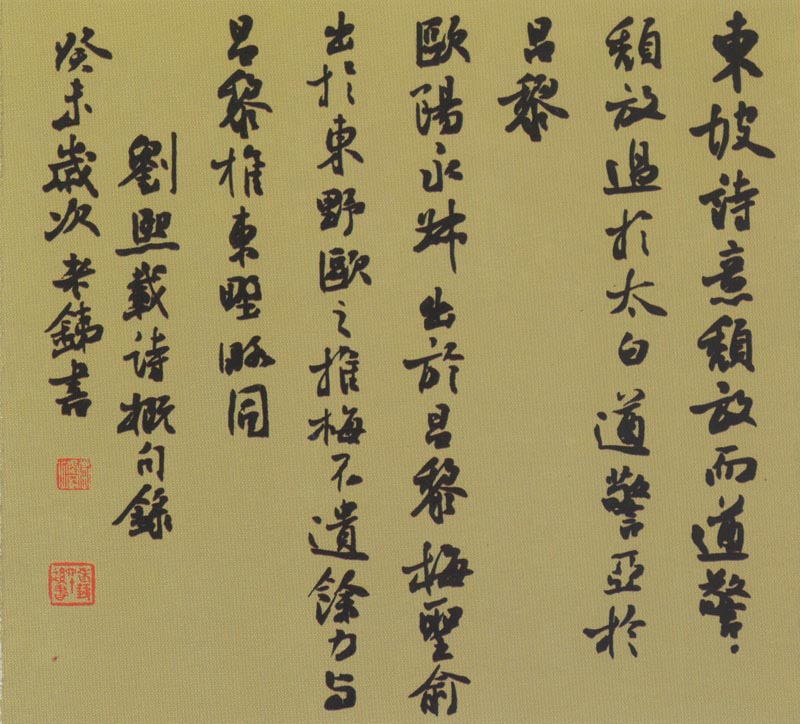 東坡詩意頹放而遒警
頹放過於太白遒警亞於
昌黎
歐陽永叔出於昌黎梅聖俞
出於東野歐之推梅不遺餘力与
昌黎推東野略同
劉熙載詩概句錄
癸未歲次老銕書